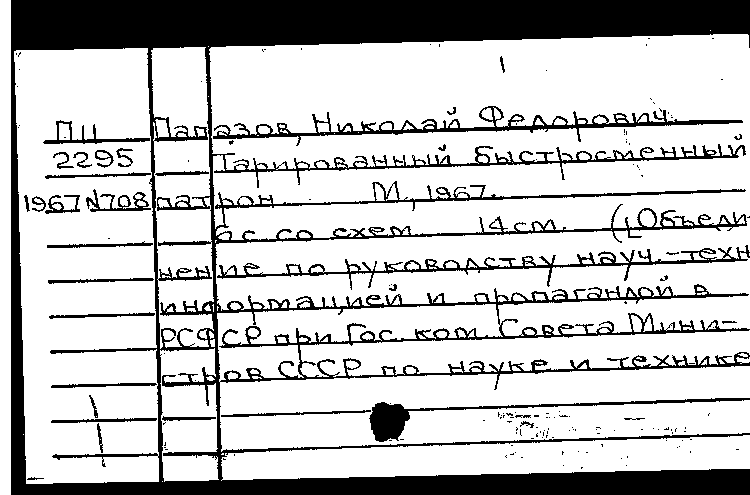 П11 Папазов, Николай Федорович.
2295 Тарированный быстросменный
1967N708 патрон. М., 1967.
6с со схем. 14 см. ([Объеди-
нение по руководству науч.-техн
информацией и пропагандой в
РСФСР при Гос. ком. Совета Мини-
стров СССР по науке и технике